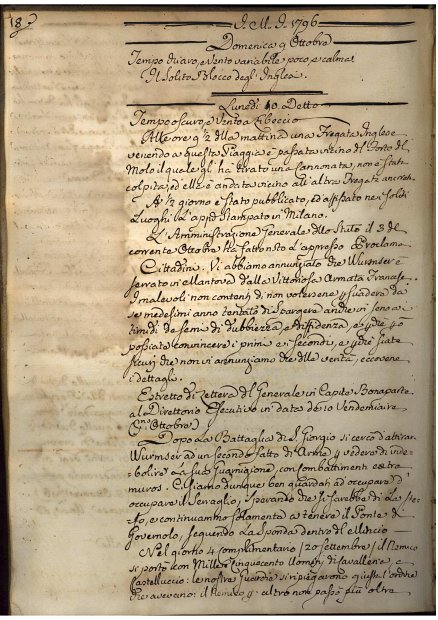 18
I. M. I. 1796
Domenica 9 Ottobre
Tempo chiaro, e Vento variabile poco, e calma
Il solito Blocco degl' Inglesi
Lunedì 10 Detto
Tempo oscuro, e Vento a Libeccio
Alle ore 9 1/2 della mattina una Fregata Inglese
venendo a questa Piaggia è passata vicino del Forte del
Molo il quale gl' ha tirato una Cannonata, non è stata
colpita, ed elle è andata vicino all' altra Fregata
A 1/2 giorno è stato pubblicato, ed affisso nei soliti
Luoghi Stampato in Milano.
L' Amministrazione Generale dello Stato il 3 del
corrente Ottobre ha fatto noto l' appresso Proclama
Cittadini. Vi abbiamo annunziato che Wurmser è
serrato in Mantova dalla Vittoriosa Armata Francese.
I malevoli non contenti di non volersene persuadere da
se medesimi anno tentato di spargere anche in seno a
timidi de semi di dubbiezza, e diffidenza, e perchè
possiate convincere i primi e i secondi, e perchè siate
sicuri che non vi annunziamo che della verità, eccovene
i dettagli.
Estretto di Lettera del Generale in Capite Bonaparte
al Direttorio Esecutivo in data de 10 Vendemiaire
Ottobre)
Dopo la Battaglia di S. Giorgio si cercò d' attirar
Wurmser ad un secondo fatto di Arme per vedere di inde-
bolire la sua Guarnigione, con combattimenti extra
muros. Ci siamo dunque ben guardati ad occupare
occupare il Serraglio, sperando che si sarebbe
e continuammo solamente a tenere il Ponte di
Governolo, seguendo la sponda dentro del Mincio
Nel giorno 4 complimentario (20 settembre) il Nemico
si portò con Mille Cinquecento Uomini di Cavalleria, a
Castelluccio: le nostre Guardie si ripiegarono giusta l' ordine
che avevano: il Nemico per altro non passò più oltre